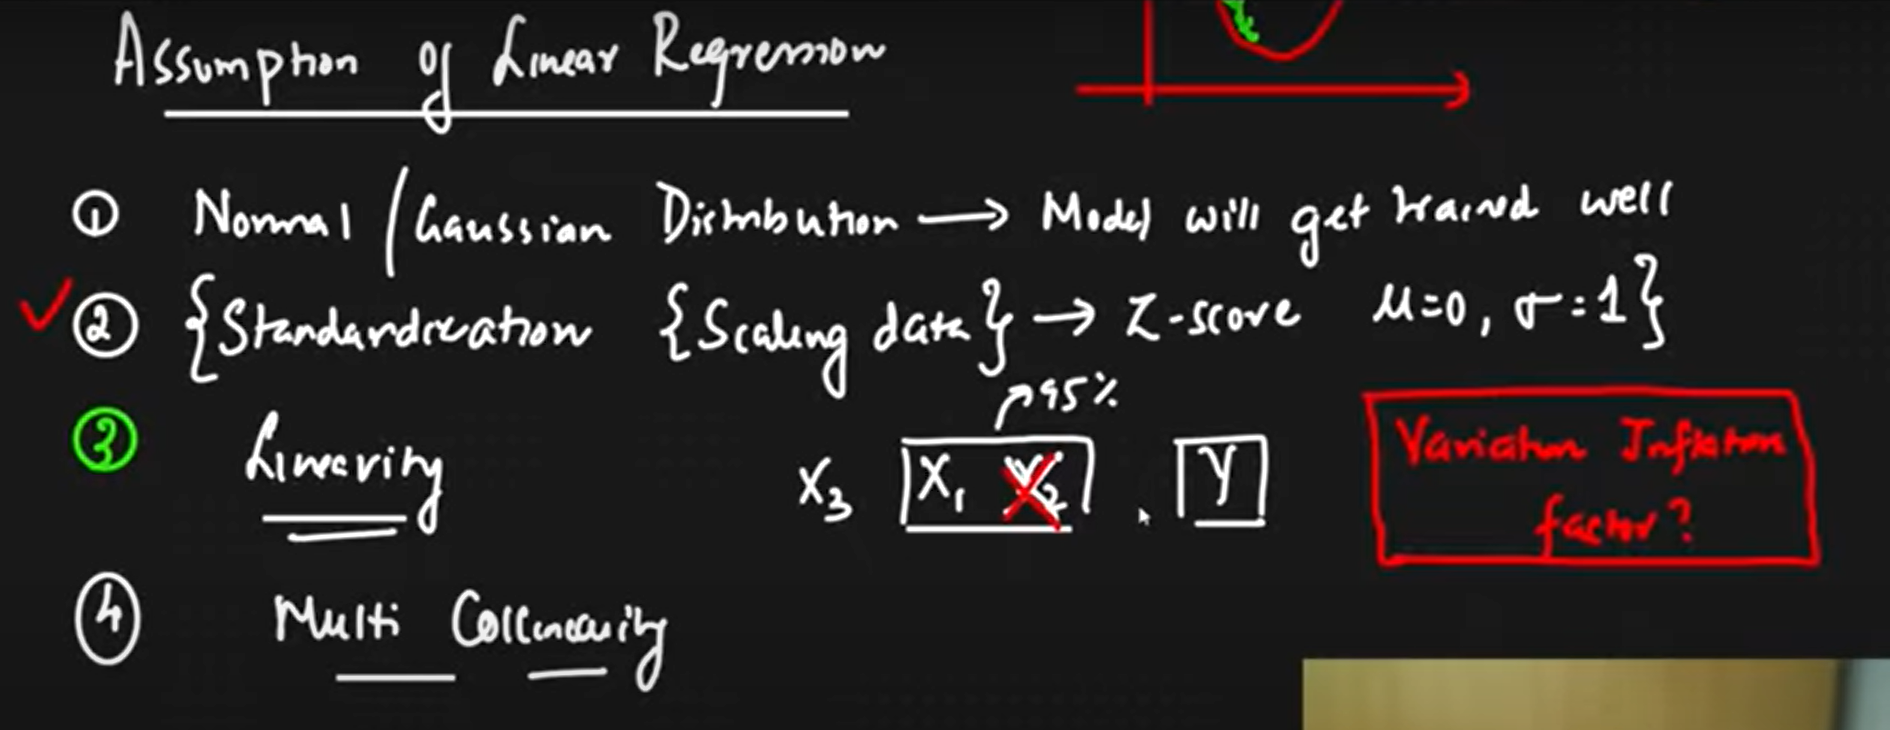 Assumption of Linear Regression
① Normal / Gaussian Distribution → Model will get trained well
② {Standardization {Scaling data} → Z-score μ=0, σ=1}
↗95%
③ Linearity X₃ X₁ X₂ . Y
Variation Inflation
factor?
④ Multi Collinearity